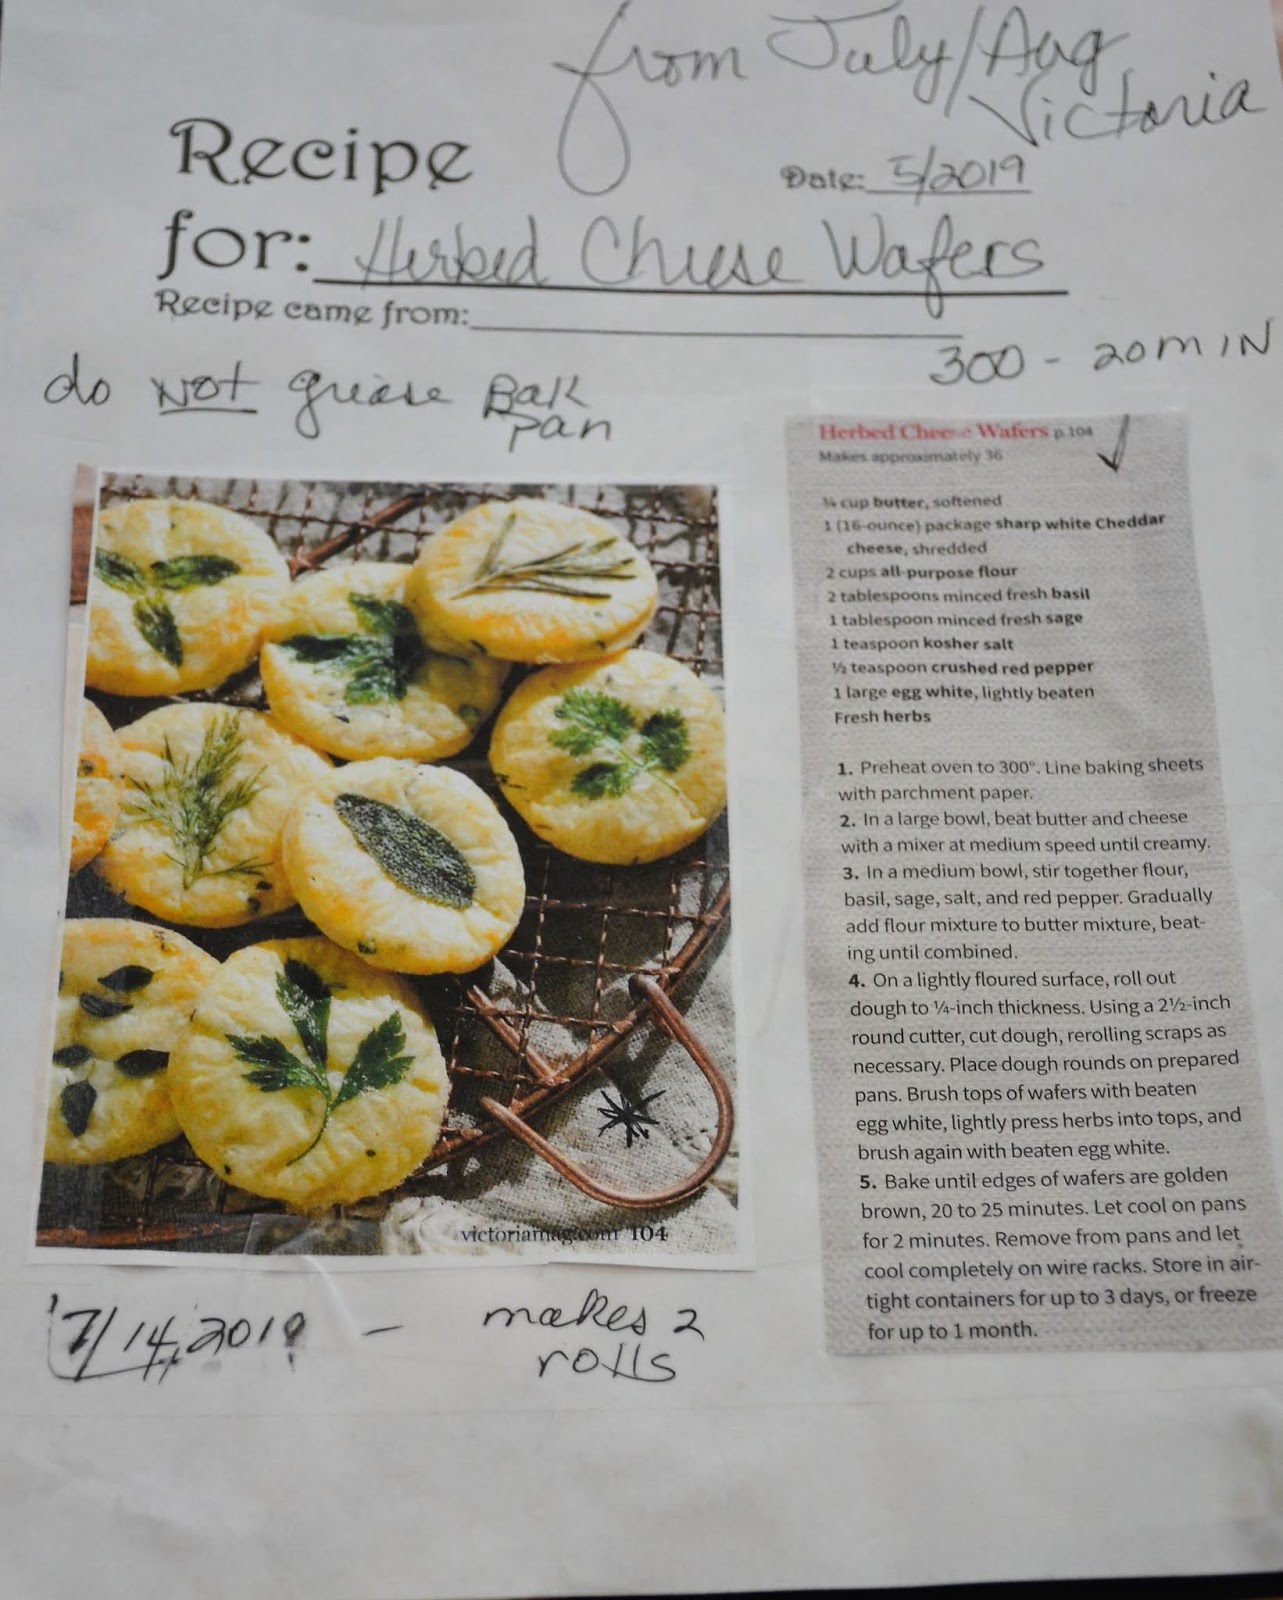 from July/Aug
Victoria
Recipe
Date: 5/2019
for: Herbed Cheese Wafers
Recipe came from:
300 - 20 MIN
do NOT grease Bak
pan
Herbed Cheese Wafers p.104
Makes approximately 36
¾ cup butter, softened
1 (16-ounce) package sharp white Cheddar
cheese, shredded
2 cups all-purpose flour
2 tablespoons minced fresh basil
1 tablespoon minced fresh sage
1 teaspoon kosher salt
½ teaspoon crushed red pepper
1 large egg white, lightly beaten
Fresh herbs
1. Preheat oven to 300°. Line baking sheets
with parchment paper.
2. In a large bowl, beat butter and cheese
with a mixer at medium speed until creamy.
3. In a medium bowl, stir together flour,
basil, sage, salt, and red pepper. Gradually
add flour mixture to butter mixture, beat-
ing until combined.
4. On a lightly floured surface, roll out
dough to ¼-inch thickness. Using a 2½-inch
round cutter, cut dough, rerolling scraps as
necessary. Place dough rounds on prepared
pans. Brush tops of wafers with beaten
egg white, lightly press herbs into tops, and
brush again with beaten egg white.
5. Bake until edges of wafers are golden
brown, 20 to 25 minutes. Let cool on pans
for 2 minutes. Remove from pans and let
cool completely on wire racks. Store in air-
tight containers for up to 3 days, or freeze
for up to 1 month.
victoriamag.com 104
7/14, 2019 - makes 2
rolls